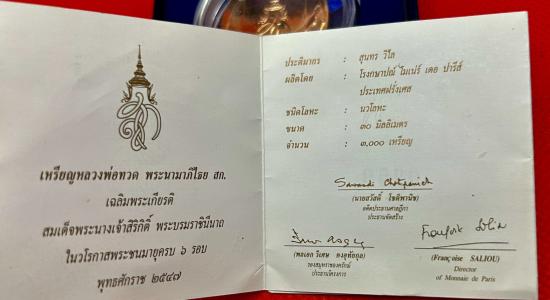 เหรียญหลวงพ่อทวด พระนามาภิไธย สก.
เฉลิมพระเกียรติ
สมเด็จพระนางเจ้าสิริกิติ์ พระบรมราชินีนาถ
ในวโรกาสพระชนมายุครบ ๖ รอบ
พุทธศักราช ๒๕๔๗
ประติมากร : สุนทร วิไล
ผลิตโดย : โรงกษาปณ์ โมเน่ร์ เดอ ปารีส์
ประเทศฝรั่งเศส
ชนิดโลหะ : นวโลหะ
ขนาด : ๓๐ มิลลิเมตร
จำนวน : ๓,๐๐๐ เหรียญ
(นายสวัสดิ์ โชติพานิช)
อดีตประธานศาลฎีกา
ประธานจัดสร้าง
(พลเอก วิเศษ คงอุทัยกุล)
รองสมุหราชองครักษ์
ประธานโครงการ
(Françoise SALIOU)
Director
of Monnaie de Paris